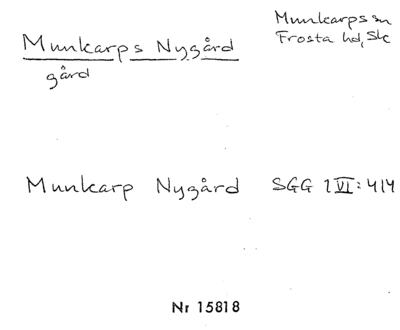 Munkarps Nygård
gård
Munkarps sn
Frosta hd, Sk
Munkarp Nygård SGG 1 VI: 414
Nr 15818